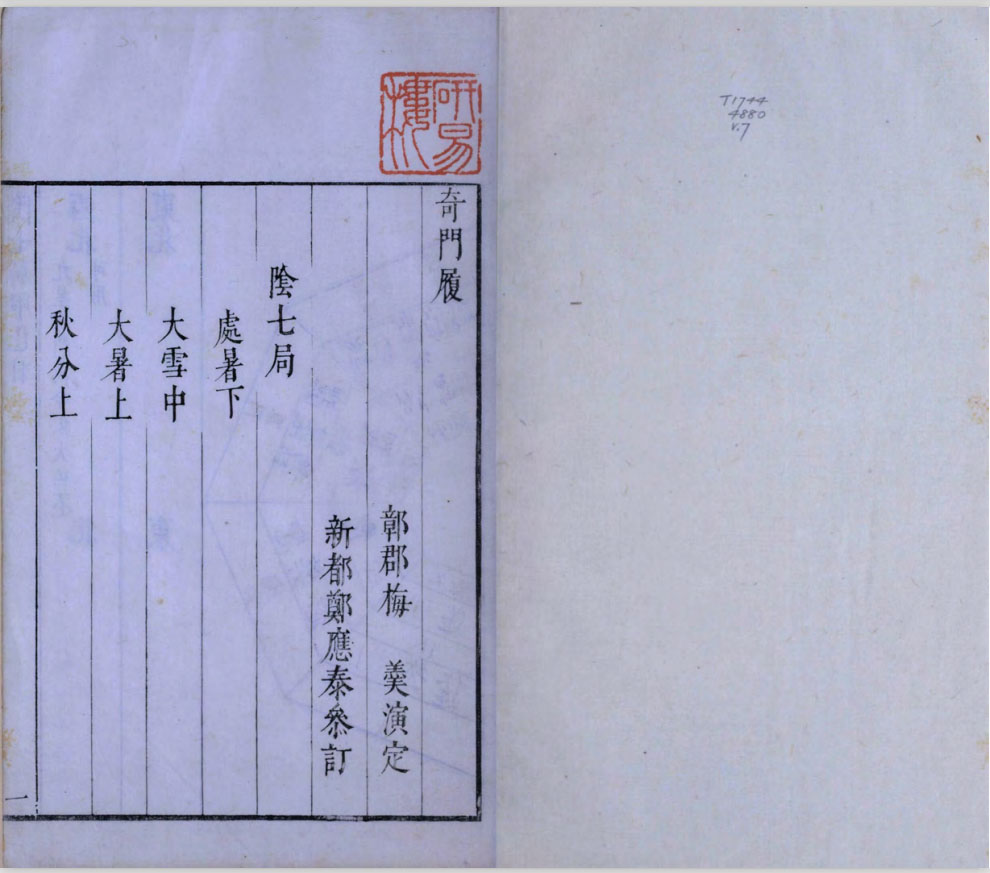 T1744
4880
v.7
研易樓
奇門履
鄣郡梅　羹演定
新都鄭應泰叅訂
陰七局
處暑下
大雪中
大暑上
秋分上
一